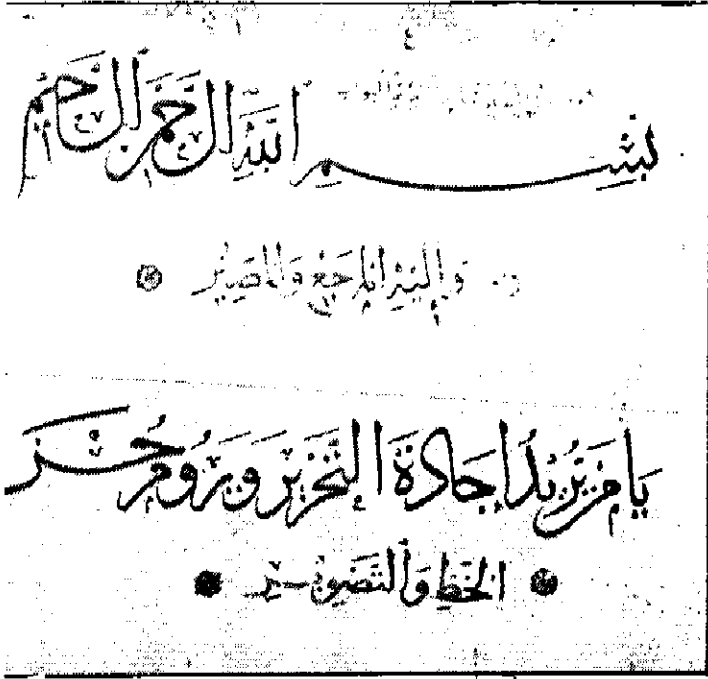 بِسْمِ اللّٰهِ الرَّحْمٰنِ الرَّحِيْمِ
وَإِلَيْهِ الْمَرْجَعُ وَالْمَصِيْرُ
يَا مَنْ يُرِيْدُ إِجَادَةَ التَّحْرِيْرِ وَيَرُوْمُ حُسْنَ
الْخَطِّ وَالتَّصْوِيْرِ